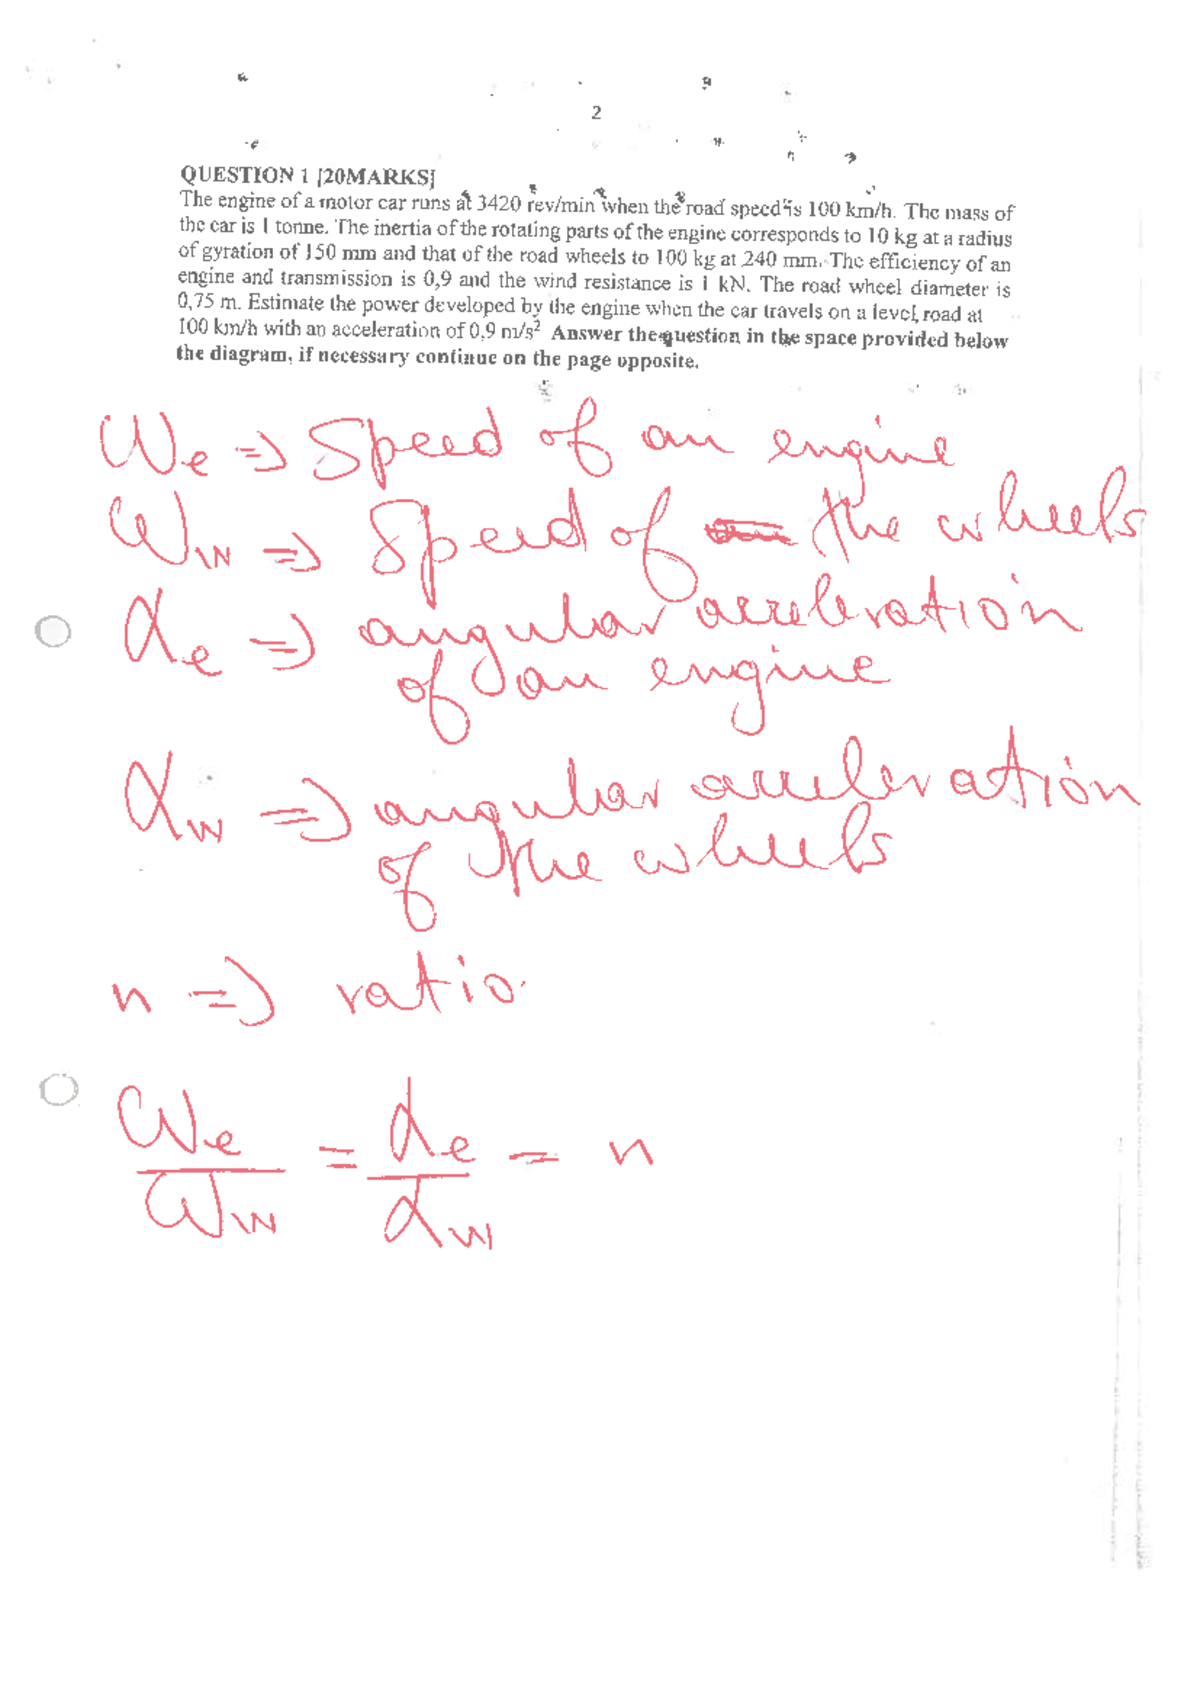 2
QUESTION 1 [20MARKS]
The engine of a motor car runs at 3420 rev/min when the road speed is 100 km/h. The mass of
the car is 1 tonne. The inertia of the rotating parts of the engine corresponds to 10 kg at a radius
of gyration of 150 mm and that of the road wheels to 100 kg at 240 mm. The efficiency of an
engine and transmission is 0,9 and the wind resistance is 1 kN. The road wheel diameter is
0,75 m. Estimate the power developed by the engine when the car travels on a level road at
100 km/h with an acceleration of 0,9 m/s² Answer the question in the space provided below
the diagram, if necessary continue on the page opposite.
ωe => Speed of an engine
ωw => Speed of the wheels
αe => angular acceleration
of an engine
αw => angular acceleration
of the wheels
n => ratio.
ωe/ωw = αe/αw = n